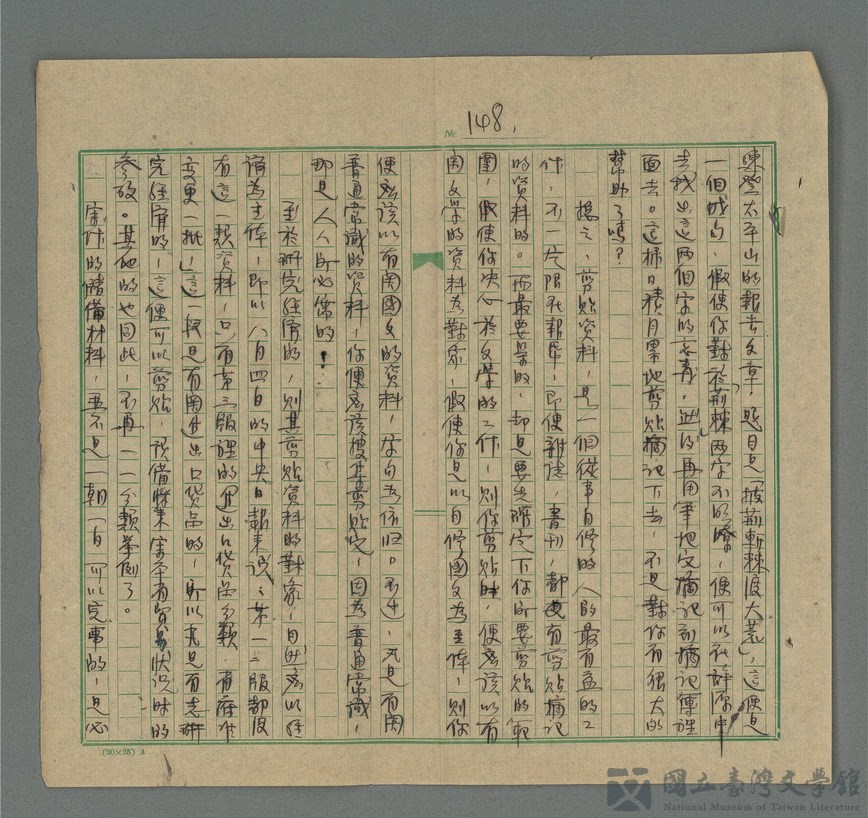 148.
№
東登太平山的報告文章,題目是「披荊斬棘渡大荒」,這便是
一個成句,假使你對於「荊棘」兩字不明瞭,便可以在辭源中
去找出這兩個字的意義,然後再用筆把它摘記到摘記簿裡
面去。這樣日積月累地剪貼摘記下去,不是對你有很大的
幫助了嗎?
總之,剪貼資料,是一個從事自修的人的最有益的工
作,不一定限於報章,即使雜誌,書刊,都要有剪貼摘記
的資料的。而最要緊的,却是要先確定下你所要剪貼的範
圍,假使你決心於文學的工作,則你剪貼時,便應該以有
關文學的資料為對象,假使你是以自修國文為主体,則你
便應該以有關國文的資料,字句為依归。不过,凡是有関
普通常識的資料,你便應該搜集剪貼它,因為普通常識,
那是人人所必需的!
至於研究經濟的,則其剪貼資料的對象,自然應以經
濟為主体,即以八月四日的中央日報来說:第一二版都沒
有這一類資料,只有第三版裡的「進出口貨品分類,有荏
变更一批」這一段是有関進出口貨品的,所以凡是有志研
究經濟的,這便可以剪貼,預備將来寫本省貿易狀况時的
參攷。其他的也因此,不再一一分類举例了。
寫作的儲備材料,並不是一朝一日可以完事的,是必
(20×25) A
國立臺灣文學館
National Museum of Taiwan Literature